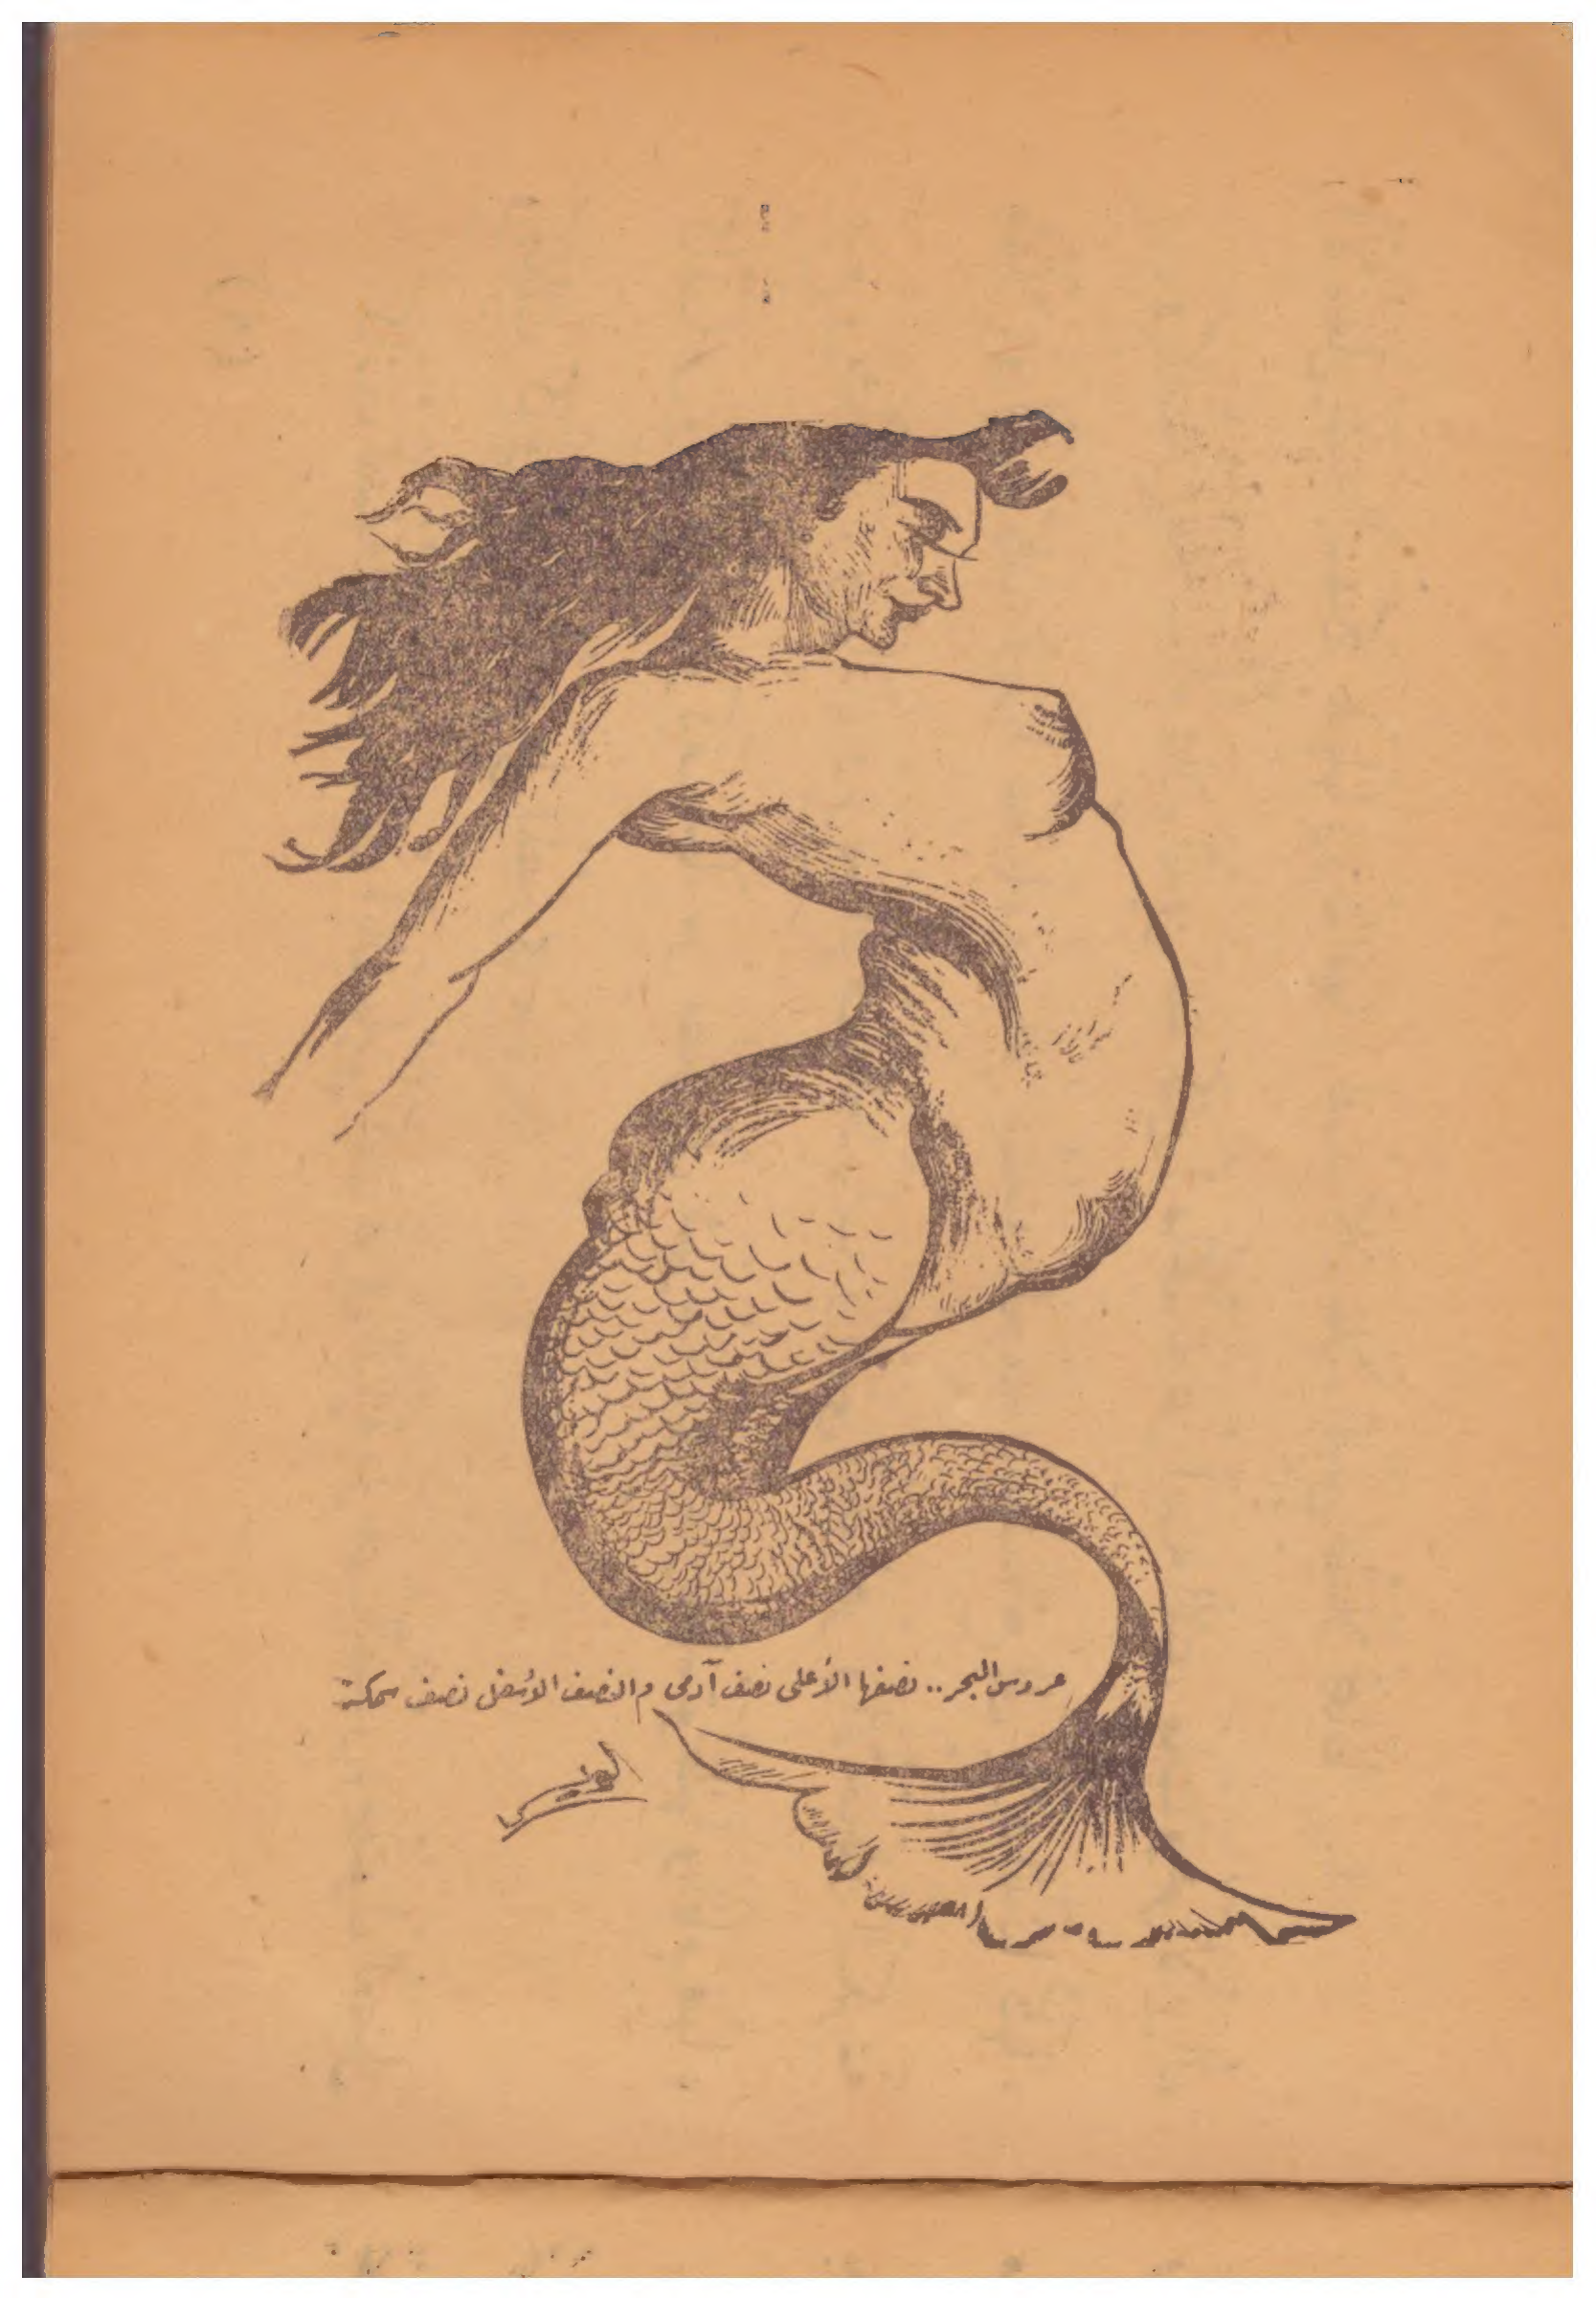 عروس البحر .. نصفها الأعلى نصف آدمى والنصف الأسفل نصف سمكة